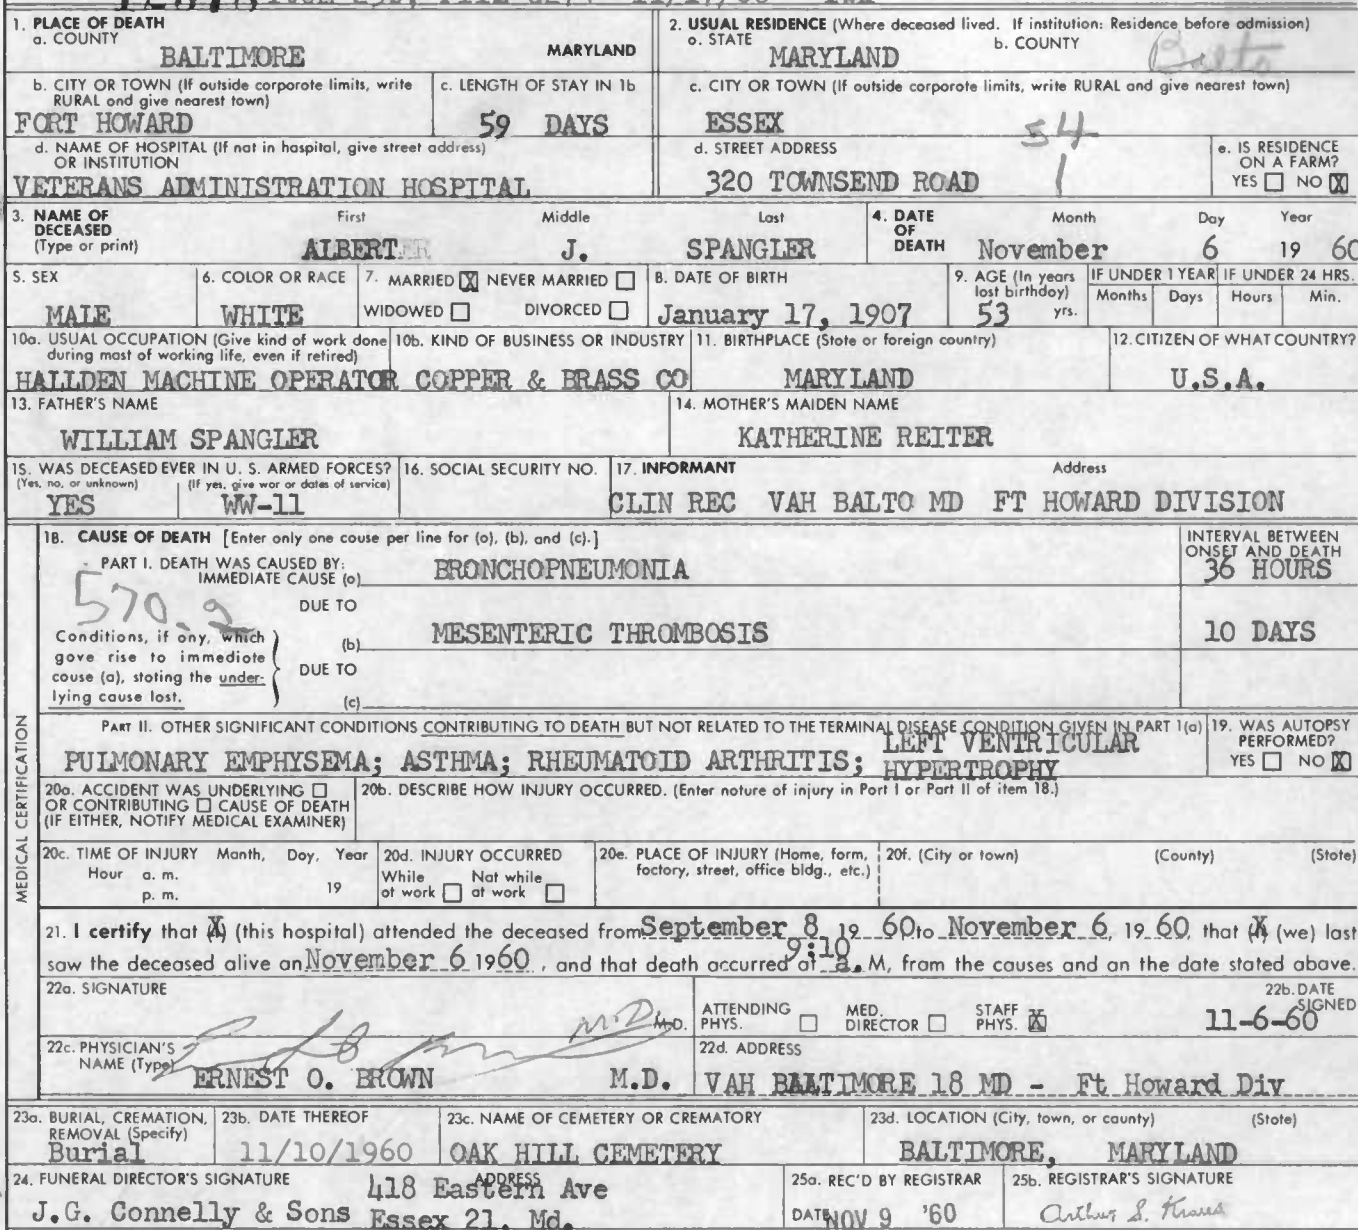 1. PLACE OF DEATH
a. COUNTY
BALTIMORE MARYLAND
2. USUAL RESIDENCE (Where deceased lived. If institution: Residence before admission)
a. STATE b. COUNTY
MARYLAND Balto
b. CITY OR TOWN (If outside corporate limits, write RURAL and give nearest town)
FORT HOWARD
c. LENGTH OF STAY IN 1b
59 DAYS
c. CITY OR TOWN (If outside corporate limits, write RURAL and give nearest town)
ESSEX 54
d. NAME OF HOSPITAL (If not in hospital, give street address) OR INSTITUTION
VETERANS ADMINISTRATION HOSPITAL
d. STREET ADDRESS
320 TOWNSEND ROAD 1
e. IS RESIDENCE ON A FARM?
YES ☐ NO ☒
3. NAME OF DECEASED (Type or print)
First Middle Last
ALBERT J. SPANGLER
4. DATE OF DEATH
Month Day Year
November 6 19 60
5. SEX
MALE
6. COLOR OR RACE
WHITE
7. MARRIED ☒ NEVER MARRIED ☐
WIDOWED ☐ DIVORCED ☐
8. DATE OF BIRTH
January 17, 1907
9. AGE (In years last birthday)
53 yrs.
IF UNDER 1 YEAR
Months Days
IF UNDER 24 HRS.
Hours Min.
10a. USUAL OCCUPATION (Give kind of work done during most of working life, even if retired)
HALLDEN MACHINE OPERATOR
10b. KIND OF BUSINESS OR INDUSTRY
COPPER & BRASS CO
11. BIRTHPLACE (State or foreign country)
MARYLAND
12. CITIZEN OF WHAT COUNTRY?
U.S.A.
13. FATHER'S NAME
WILLIAM SPANGLER
14. MOTHER'S MAIDEN NAME
KATHERINE REITER
15. WAS DECEASED EVER IN U. S. ARMED FORCES?
(Yes, no, or unknown) (If yes, give war or dates of service)
YES WW-11
16. SOCIAL SECURITY NO.
17. INFORMANT Address
CLIN REC VAH BALTO MD FT HOWARD DIVISION
MEDICAL CERTIFICATION
18. CAUSE OF DEATH [Enter only one cause per line for (a), (b), and (c).]
INTERVAL BETWEEN ONSET AND DEATH
PART I. DEATH WAS CAUSED BY:
IMMEDIATE CAUSE (a) BRONCHOPNEUMONIA 36 HOURS
570.2
DUE TO
Conditions, if any, which gave rise to immediate cause (a), stating the underlying cause last.
(b) MESENTERIC THROMBOSIS 10 DAYS
DUE TO
(c)
PART II. OTHER SIGNIFICANT CONDITIONS CONTRIBUTING TO DEATH BUT NOT RELATED TO THE TERMINAL DISEASE CONDITION GIVEN IN PART 1(a)
PULMONARY EMPHYSEMA; ASTHMA; RHEUMATOID ARTHRITIS; LEFT VENTRICULAR HYPERTROPHY
19. WAS AUTOPSY PERFORMED?
YES ☐ NO ☒
20a. ACCIDENT WAS UNDERLYING ☐
OR CONTRIBUTING ☐ CAUSE OF DEATH
(IF EITHER, NOTIFY MEDICAL EXAMINER)
20b. DESCRIBE HOW INJURY OCCURRED. (Enter nature of injury in Part I or Part II of item 18.)
20c. TIME OF INJURY Month, Day, Year
Hour a. m.
p. m. 19
20d. INJURY OCCURRED
While at work ☐ Not while at work ☐
20e. PLACE OF INJURY (Home, farm, factory, street, office bldg., etc.)
20f. (City or town) (County) (State)
21. I certify that (X) (this hospital) attended the deceased from September 8 19 60 to November 6, 19 60, that (X) (we) last
saw the deceased alive on November 6 1960, and that death occurred at 9:10 a. M, from the causes and on the date stated above.
22a. SIGNATURE
M.D. M.D.
ATTENDING PHYS. ☐ MED. DIRECTOR ☐ STAFF PHYS. ☒
22b. DATE SIGNED
11-6-60
22c. PHYSICIAN'S NAME (Type)
ERNEST O. BROWN M.D.
22d. ADDRESS
VAH BALTIMORE 18 MD - Ft Howard Div
23a. BURIAL, CREMATION, REMOVAL (Specify)
Burial
23b. DATE THEREOF
11/10/1960
23c. NAME OF CEMETERY OR CREMATORY
OAK HILL CEMETERY
23d. LOCATION (City, town, or county) (State)
BALTIMORE, MARYLAND
24. FUNERAL DIRECTOR'S SIGNATURE ADDRESS
J.G. Connelly & Sons 418 Eastern Ave
Essex 21, Md.
25a. REC'D BY REGISTRAR
DATE NOV 9 '60
25b. REGISTRAR'S SIGNATURE
Arthur S. Kraus